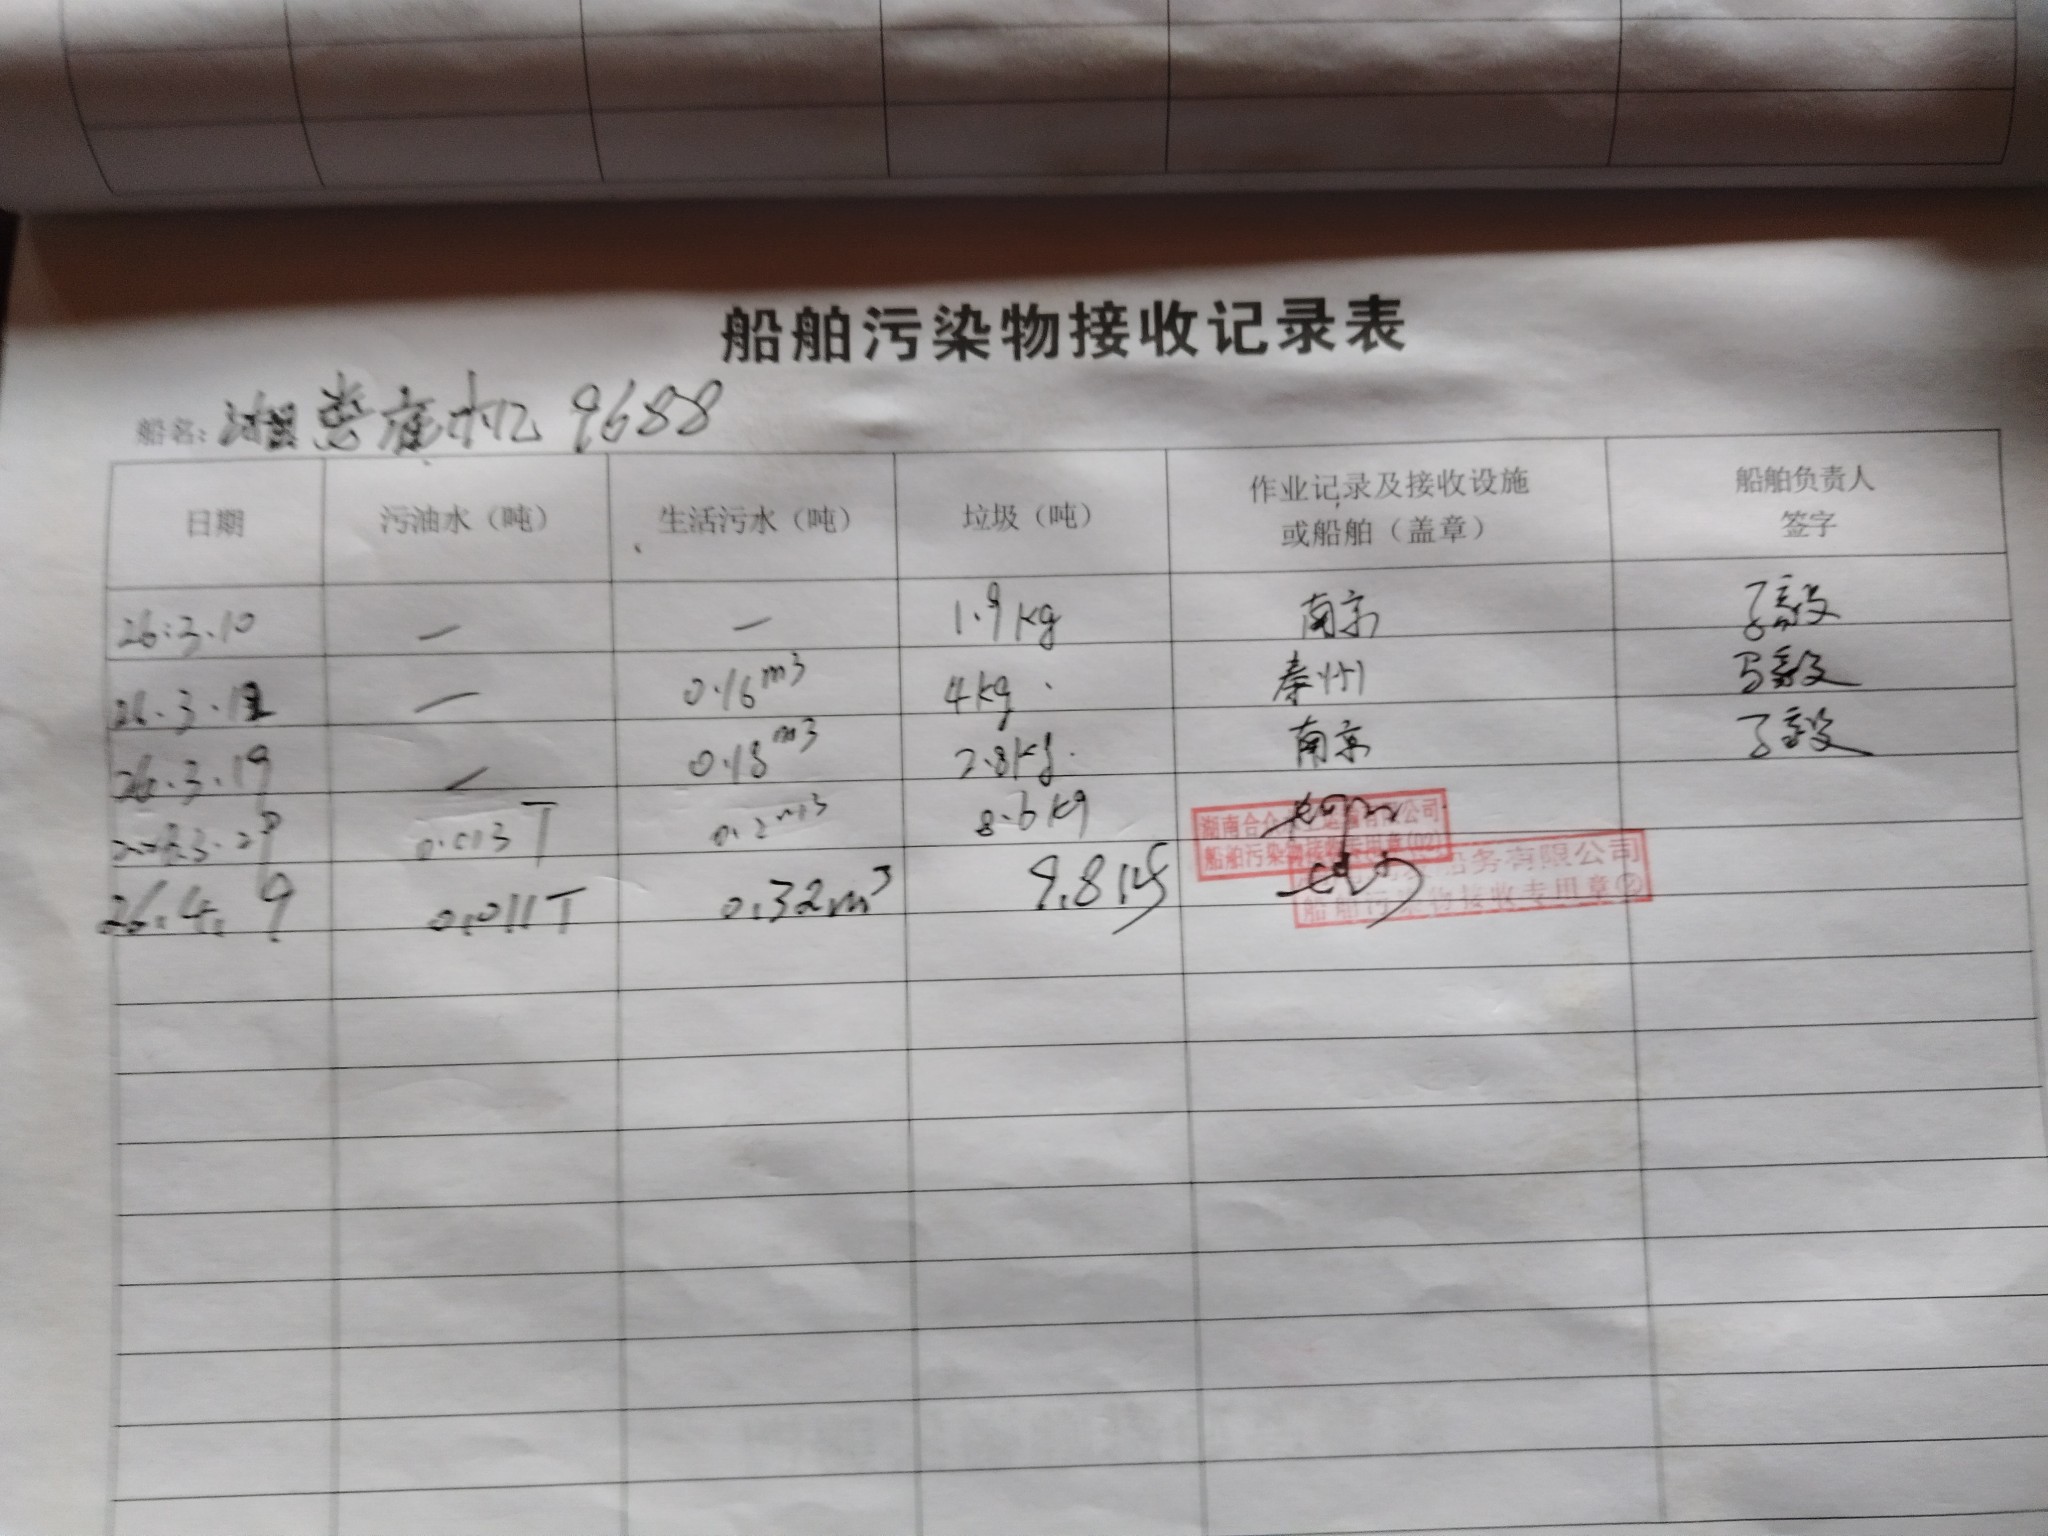 船舶污染物接收记录表
船名: 9688
日期 污油水（吨） 生活污水（吨） 垃圾（吨） 作业记录及接收设施或船舶（盖章） 船舶负责人签字
26.3.10 — — 1.9kg 南京
26.3. — 0.16m3 4kg 泰州
26.3.19 — 0.18m3 2.8kg 南京
0.013T 0.2m3 8.6kg 有限公司
船舶污染物接收专用章(02)
26.4.9 0.011T 0.32m3 9.8kg 船务有限公司
船舶污染物接收专用章②